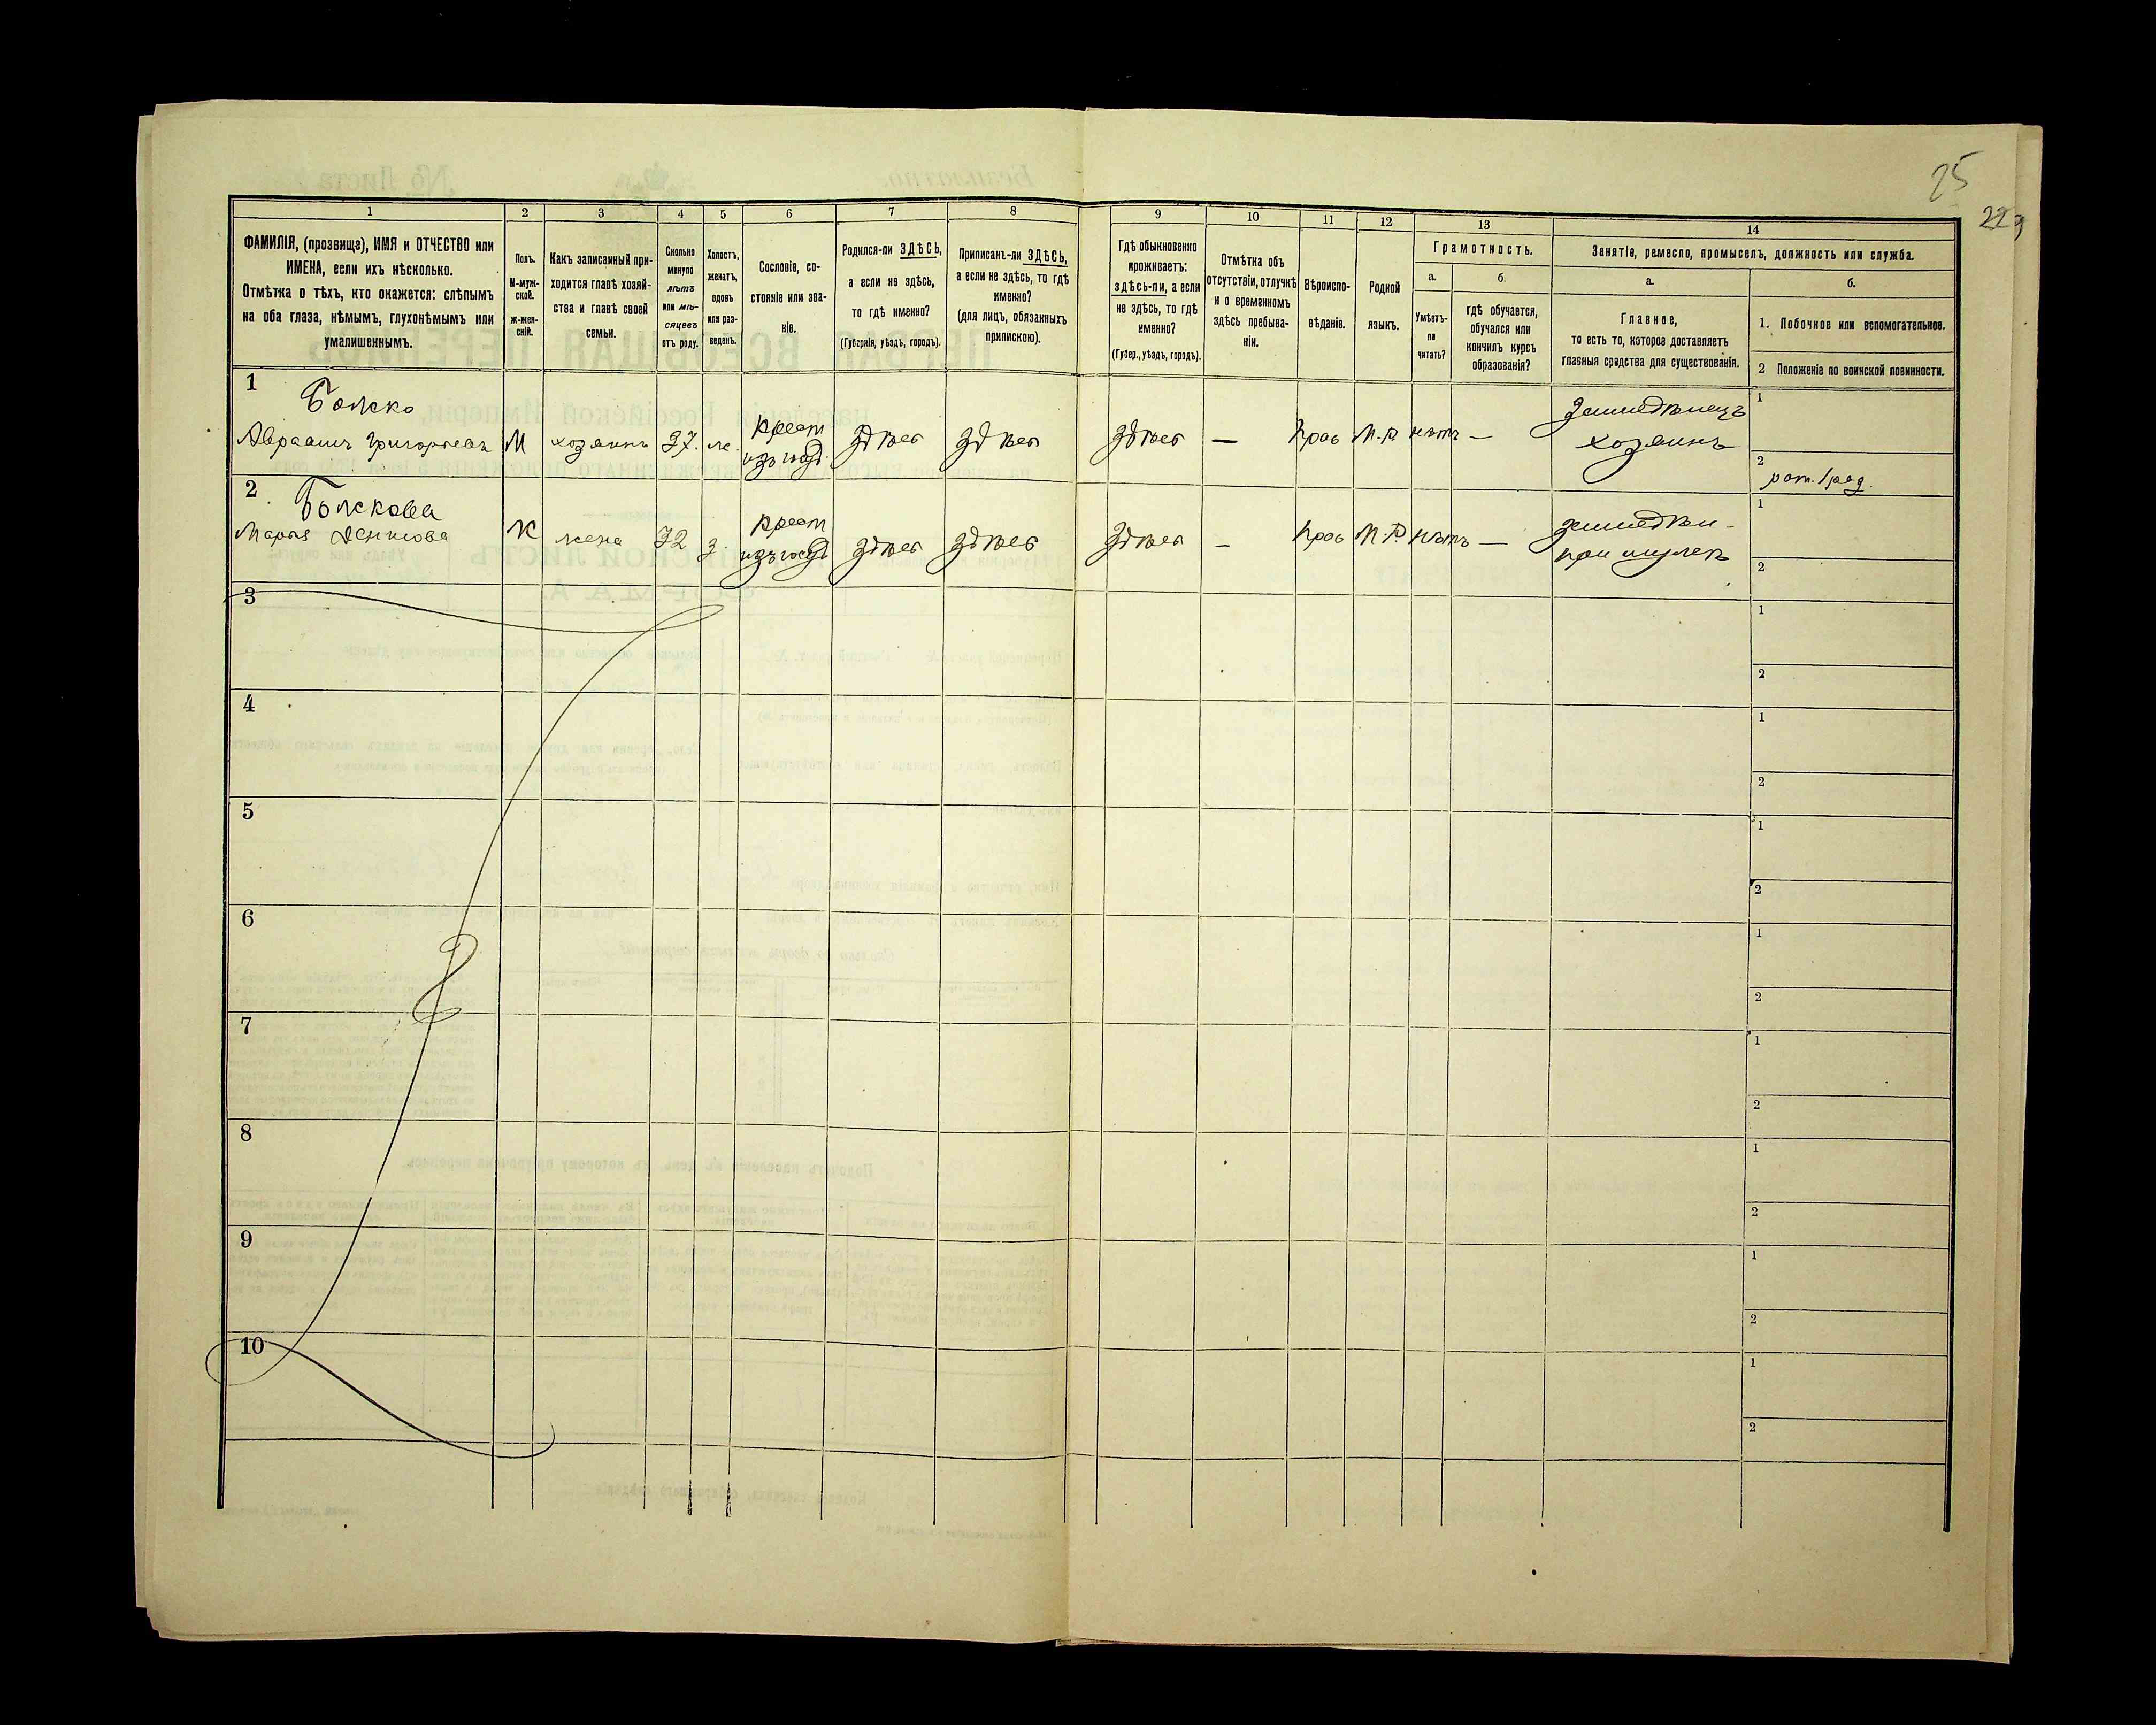 25
223
1
2
3
4
5
6
7
8
9
10
11
12
13
14
ФАМИЛІЯ, (прозвище), ИМЯ и ОТЧЕСТВО или
ИМЕНА, если ихъ нѣсколько.
Отмѣтка о тѣхъ, кто окажется: слѣпымъ
на оба глаза, нѣмымъ, глухонѣмымъ или
умалишеннымъ.
Полъ.
М-муж-
ской.
ж-жен-
скій.
Какъ записанный при-
ходится главѣ хозяй-
ства и главѣ своей
семьи.
Сколько
минуло
лѣтъ
или мѣ-
сяцевъ
отъ роду.
Холостъ,
женатъ,
вдовъ
или раз-
веденъ.
Сословіе, со-
стояніе или зва-
ніе.
Родился-ли ЗДѢСЬ,
а если не здѣсь,
то гдѣ именно?
(Губернія, уѣздъ, городъ).
Приписанъ-ли ЗДѢСЬ,
а если не здѣсь, то гдѣ
именно?
(для лицъ, обязанныхъ
припискою).
Гдѣ обыкновенно
проживаетъ:
здѣсь-ли, а если
не здѣсь, то гдѣ
именно?
(Губер., уѣздъ, городъ).
Отмѣтка объ
отсутствіи, отлучкѣ
и о временномъ
здѣсь пребыва-
ніи.
Вѣроиспо-
вѣданіе.
Родной
языкъ.
Грамотность.
а.
Умѣетъ-
ли
читать?
б.
гдѣ обучается,
обучался или
кончилъ курсъ
образованія?
Занятіе, ремесло, промыселъ, должность или служба.
а.
Главное,
то есть то, которое доставляетъ
главныя средства для существованія.
б.
1. Побочное или вспомогательное.
2 Положеніе по воинской повинности.
1
Божко
Авраамъ Григорьевъ М хозяинъ 37. ж. крест изъ госуд. здѣсь здѣсь здѣсь — прав М.Р. нѣтъ —
земледѣлецъ
хозяинъ
1
2
рат. 1 раз.
2
Божкова
Марѳа Денисова Ж жена 32 з крест изъ госуд здѣсь здѣсь здѣсь — прав М.Р. нѣтъ —
земледѣл-
при мужѣ
1
2
3
1
2
4
1
2
5
1
2
6
1
2
7
1
2
8
1
2
9
1
2
10
1
2